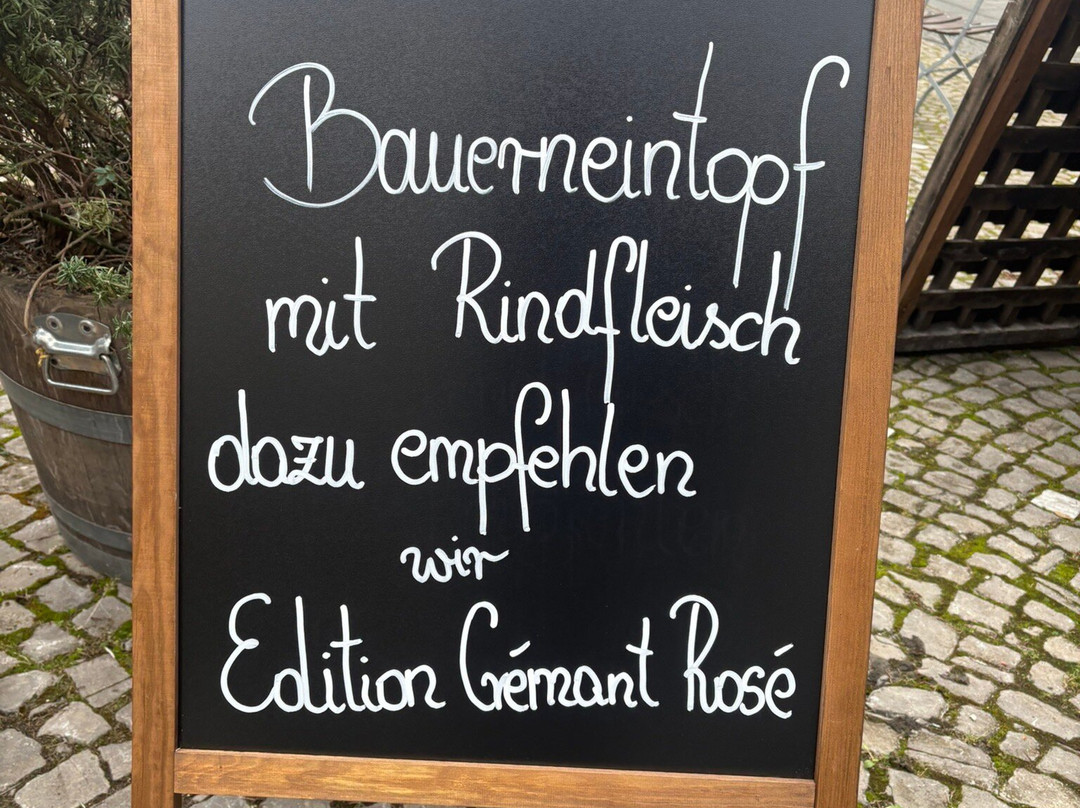 Bauerneintopf
mit Rindfleisch
dazu empfehlen
wir
Edition Crémant Rosé